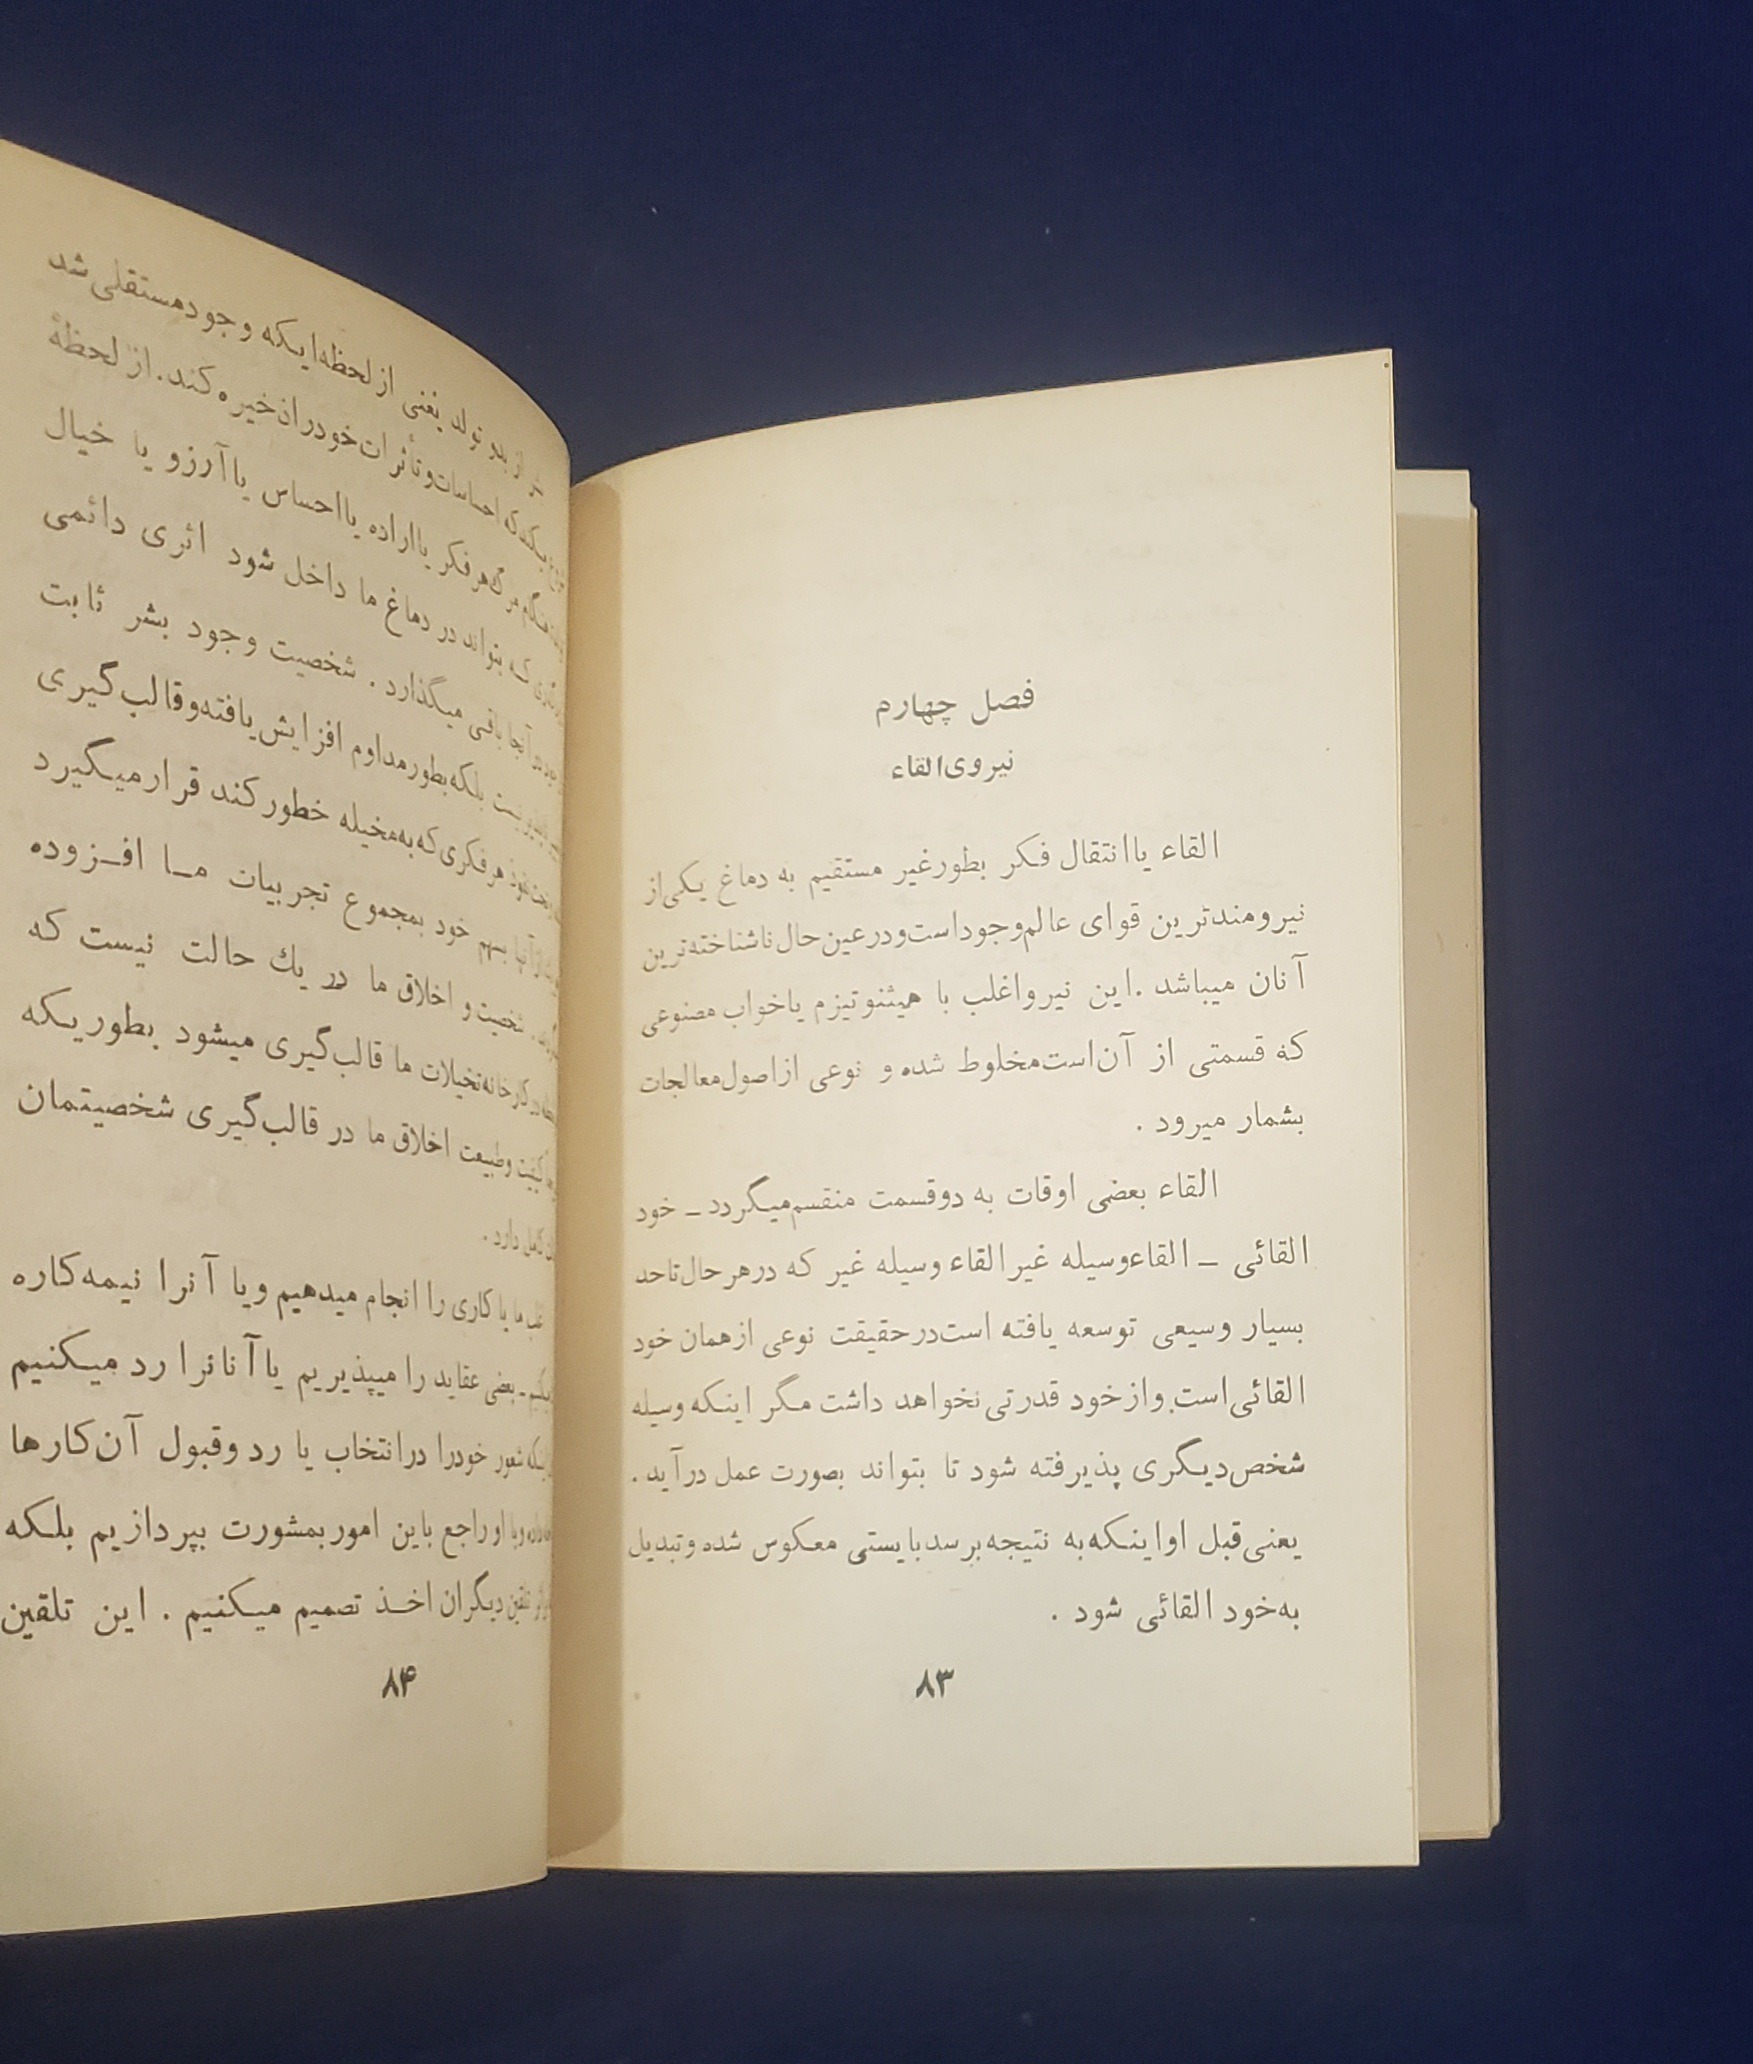 فصل چهارم
نیروی القاء
القاء یا انتقال فکر بطور غیر مستقیم به دماغ یکی از
نیرومندترین قوای عالم وجود است و در عین حال ناشناخته‌ترین
آنان میباشد . این نیرو اغلب با هیپنوتیزم یا خواب مصنوعی
که قسمتی از آن است مخلوط شده و نوعی از اصول معالجات
بشمار میرود .
القاء بعضی اوقات به دو قسمت منقسم میگردد ــ خود
القائی ــ القاء وسیله غیر القاء وسیله غیر که در هر حال تا حد
بسیار وسیعی توسعه یافته است در حقیقت نوعی از همان خود
القائی است. و از خود قدرتی نخواهد داشت مگر اینکه وسیله
شخص دیگری پذیرفته شود تا بتواند بصورت عمل درآید .
یعنی قبل او اینکه به نتیجه برسد بایستی معکوس شده و تبدیل
به خود القائی شود .
۸۳
از بدو تولد یعنی از لحظه‌ایکه وجود مستقلی شد
احساسات و تأثرات خود را ن خیره کند. از لحظهٔ
هنگام مرگ هر فکر یا اراده یا احساس یا آرزو یا خیال
که بتواند در دماغ ما داخل شود اثری دائمی
آنجا باقی میگذارد . شخصیت وجود بشر ثابت
نیست بلکه بطور مداوم افزایش یافته و قالب گیری
تحت نفوذ هر فکری که به مخیله خطور کند قرار میگیرد
از آنها بسهم خود بمجموع تجربیات مــا افــزوده
شخصیت و اخلاق ما در یك حالت نیست که
در کارخانه تخیلات ما قالب گیری میشود بطوریکه
کیفیت و طبیعت اخلاق ما در قالب گیری شخصیتمان
کامل دارد .
ما یا کاری را انجام میدهیم و یا آنرا نیمه کاره
ــ بعضی عقاید را میپذیریم یا آنانرا رد میکنیم
شعور خود را در انتخاب یا رد و قبول آن کارها
و با او راجع باین امور بمشورت بپردازیم بلکه
تلقین دیگران اخــذ تصمیم میکنیم . این تلقین
۸۴